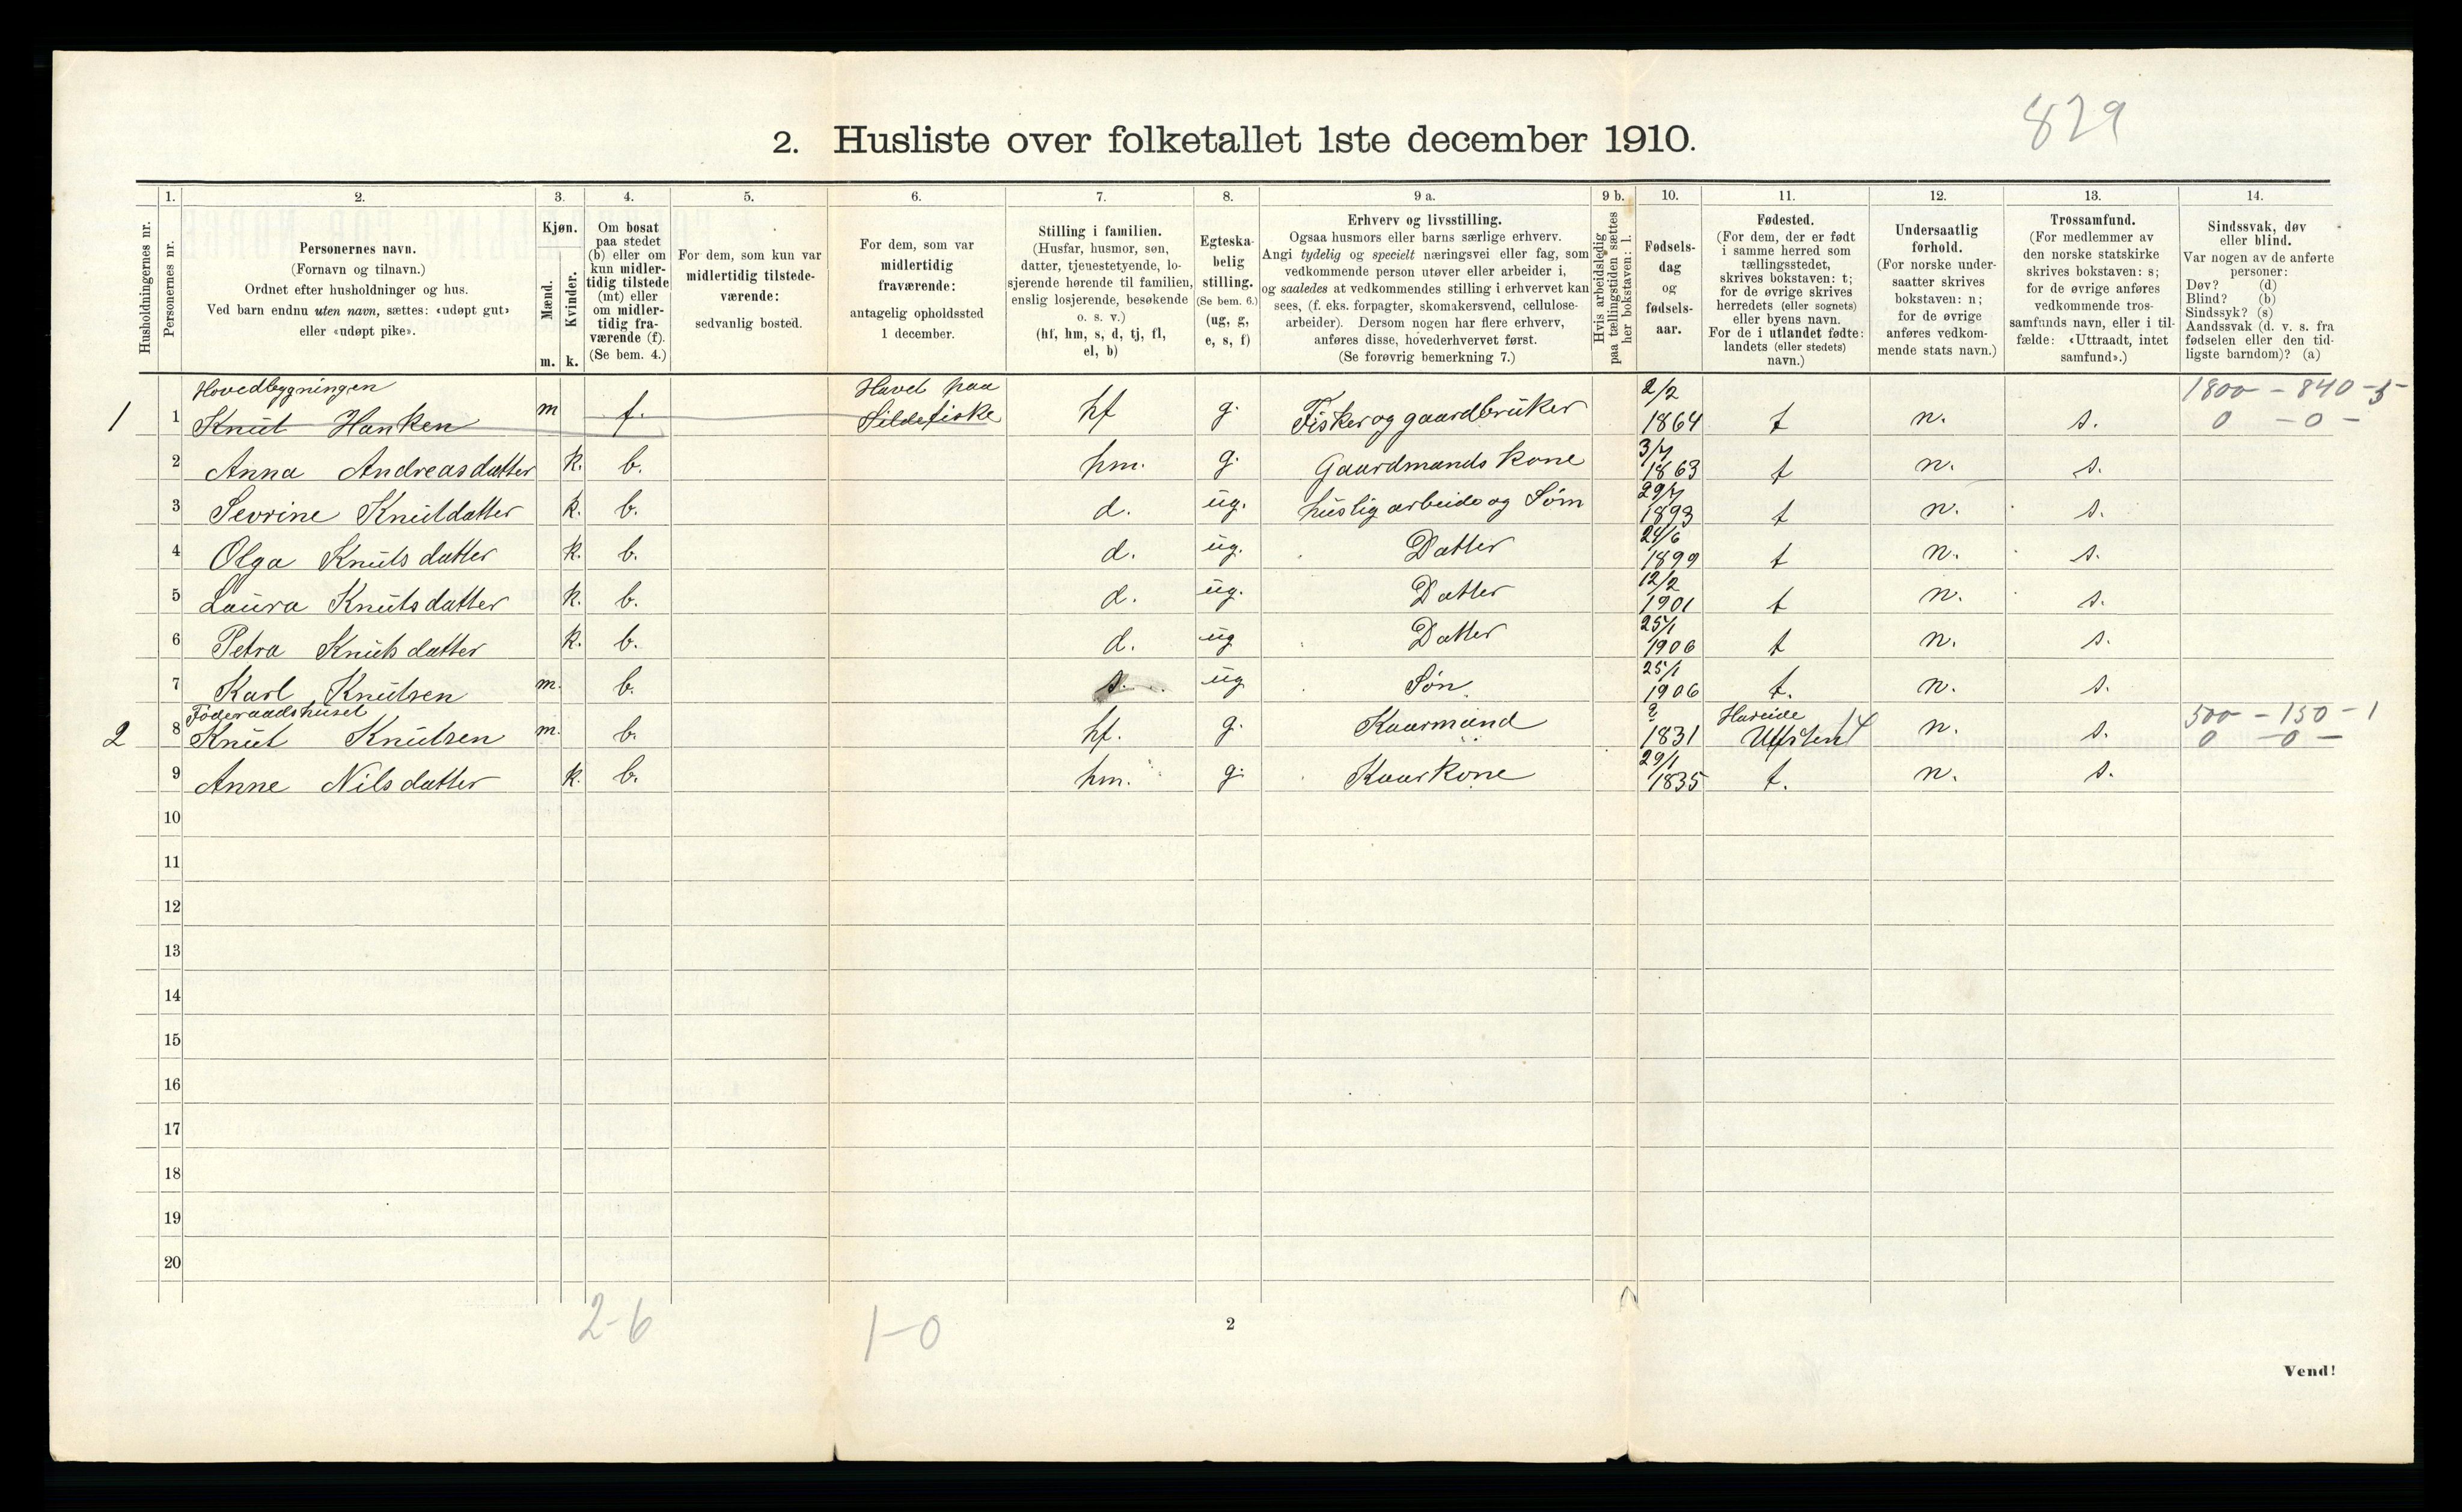 829
2. Husliste over folketallet 1ste december 1910.
Husholdningernes nr.
1.
Personernes nr.
2.
Personernes navn.
(Fornavn og tilnavn.)
Ordnet efter husholdninger og hus.
Ved barn endnu uten navn, sættes: «udøpt gut»
eller «udøpt pike».
3.
Kjøn.
Mænd.
Kvinder.
m. k.
4.
Om bosat
paa stedet
(b) eller om
kun midler-
tidig tilstede
(mt) eller
om midler-
tidig fra-
værende (f).
(Se bem. 4.)
5.
For dem, som kun var
midlertidig tilstede-
værende:
sedvanlig bosted.
6.
For dem, som var
midlertidig
fraværende:
antagelig opholdssted
1 december.
7.
Stilling i familien.
(Husfar, husmor, søn,
datter, tjenestetyende, lo-
sjerende hørende til familien,
enslig losjerende, besøkende
o. s. v.)
(hf, hm, s, d, tj, fl,
el, b)
8.
Egteska-
belig
stilling.
(Se bem. 6.)
(ug, g,
e, s, f)
9 a.
Erhverv og livsstilling.
Ogsaa husmors eller barns særlige erhverv.
Angi tydelig og specielt næringsvei eller fag, som
vedkommende person utøver eller arbeider i,
og saaledes at vedkommendes stilling i erhvervet kan
sees, (f. eks. forpagter, skomakersvend, cellulose-
arbeider). Dersom nogen har flere erhverv,
anføres disse, hovederhvervet først.
(Se forøvrig bemerkning 7.)
9 b.
Hvis arbeidsledig
paa tællingstiden sættes
her bokstaven: l.
10.
Fødsels-
dag
og
fødsels-
aar.
11.
Fødested.
(For dem, der er født
i samme herred som
tællingsstedet,
skrives bokstaven: t;
for de øvrige skrives
herredets (eller sognets)
eller byens navn.
For de i utlandet fødte:
landets (eller stedets)
navn.)
12.
Undersaatlig
forhold.
(For norske under-
saatter skrives
bokstaven: n;
for de øvrige
anføres vedkom-
mende stats navn.)
13.
Trossamfund.
(For medlemmer av
den norske statskirke
skrives bokstaven: s;
for de øvrige anføres
vedkommende tros-
samfunds navn, eller i til-
fælde: «Uttraadt, intet
samfund».)
14.
Sindssvak, døv
eller blind.
Var nogen av de anførte
personer:
Døv? (d)
Blind? (b)
Sindssyk? (s)
Aandssvak (d. v. s. fra
fødselen eller den tid-
ligste barndom)? (a)
Hovedbygningen Havet paa 2/2 1800 - 840 - 5
1 1 Knut Hanken m f. Sildefiske hf g. Fisker og gaardbruker 1864 t n. s. 0 - 0 -
2 Anna Andreasdatter k. b. hm. g. Gaardmands kone 3/7 1863 t n. s.
3 Sevrine Knutdatter k. b. d. ug. huslig arbeide og Søm 29/7 1893 t n. s.
4 Olga Knutsdatter k. b. d. ug. Datter 24/6 1899 t n. s.
5 Laura Knutsdatter k. b. d. ug. Datter 12/2 1901 t n. s.
6 Petra Knutsdatter k. b. d. ug Datter 25/1 1906 t n. s.
7 Karl Knutsen m. b. s. ug Søn. 25/1 1906 t. n. s.
Føderaadshuset ? Hareide 14 500 - 150 - 1
2 8 Knut Knutsen m. b. hf. g. Kaarmand 1831 n. s. 0 - 0 -
9 Anne Nilsdatter k. b. hm. g. Kaarkone 29/1 1835 t. n. s.
10
11
12
13
14
15
16
17
18
19
20
2-6 1-0
2
Vend!